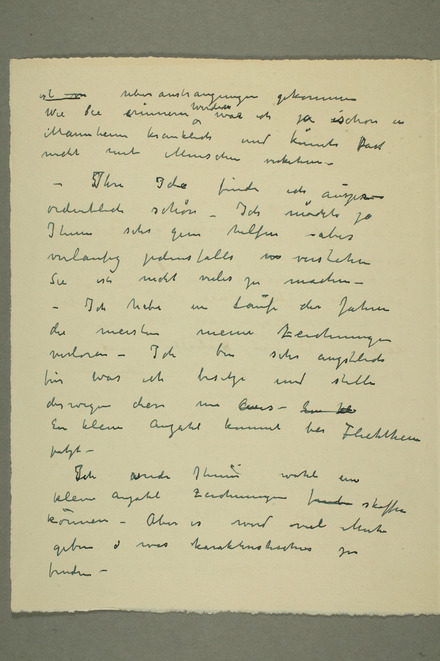 ist überanstrengungen gekommen
Wie Sie erinnern werden war ich ja schon in
Mannheim kränklich und könnte fast
nicht mit Menschen verkehren –
– Ihre Idee finde ich ausser-
ordentlich schön – Ich möchte ja
Ihnen sehr gern helfen – aber
vorläufig jedenfalls verstehen
Sie ist nicht vieles zu machen –
– Ich habe im Laufe der Jahren
die meisten meine Zeichnungen
verloren – Ich bin sehr ängstlich
für was ich besitze und stelle
deswegen diese nie aus –
Ein kleine Anzahl kommt bei Flechtheim
jetzt –
Ich werde Ihnen wohl ein
kleine Anzahl Zeichnungen skaffen
können – Aber es wird viel Mühe
geben was karakteristisches zu
finden –